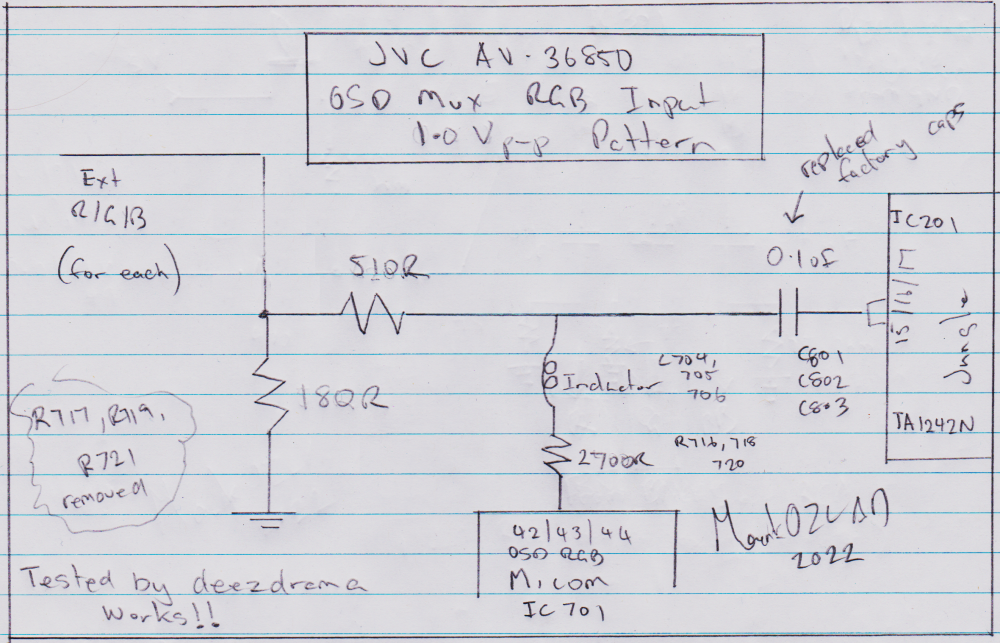 JVC AV-36850
OSD Mux RGB Input
1.0 Vp-p Pattern
replaced
factory caps
Ext
R/G/B
(for each)
510R
0.1uF
IC201
15/16/17
Jungle
TA1242N
180R
Inductor
L704,
705
706
C801
C802
C803
R717, R719,
R721
removed
2700R
R716, 718
720
42/43/44
OSD RGB
Micom
IC 701
MarkOZLAD
2022
Tested by deezdrama
Works!!